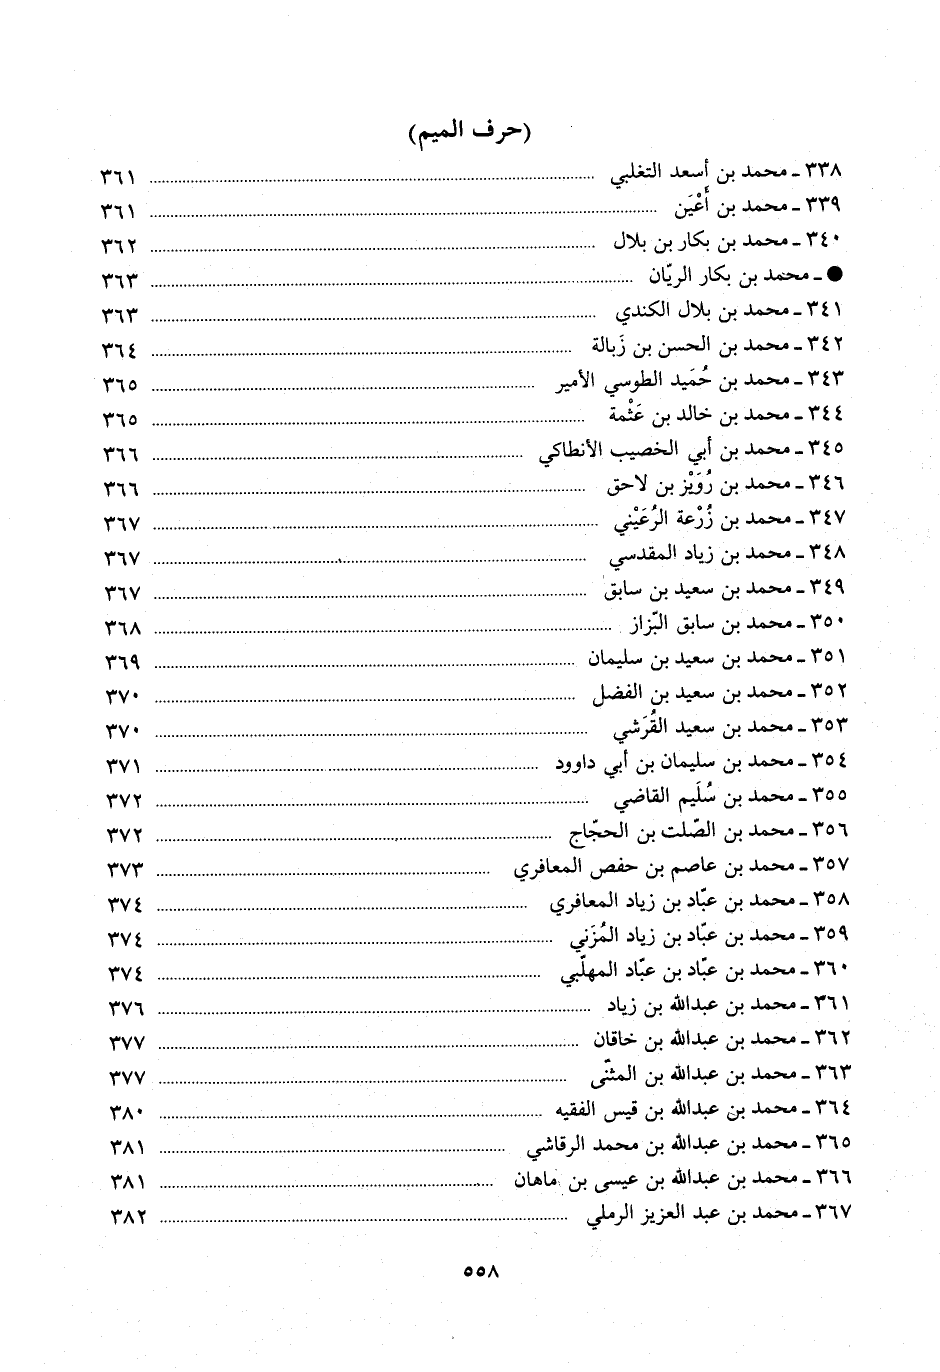 (حرف الميم)
٣٣٨ ـ محمد بن أسعد التغلبي ........ ٣٦١
٣٣٩ ـ محمد بن أَعْيَن ........ ٣٦١
٣٤٠ ـ محمد بن بكار بن بلال ........ ٣٦٢
● ـ محمد بن بكار الريّان ........ ٣٦٣
٣٤١ ـ محمد بن بلال الكندي ........ ٣٦٣
٣٤٢ ـ محمد بن الحسن بن زَبالة ........ ٣٦٤
٣٤٣ ـ محمد بن حُمَيد الطوسي الأمير ........ ٣٦٥
٣٤٤ ـ محمد بن خالد بن عَثْمة ........ ٣٦٥
٣٤٥ ـ محمد بن أبي الخصيب الأنطاكي ........ ٣٦٦
٣٤٦ ـ محمد بن رُوَيْز بن لاحق ........ ٣٦٦
٣٤٧ ـ محمد بن زُرْعة الرُعَيْني ........ ٣٦٧
٣٤٨ ـ محمد بن زياد المقدسي ........ ٣٦٧
٣٤٩ ـ محمد بن سعيد بن سابق ........ ٣٦٧
٣٥٠ ـ محمد بن سابق البّزاز ........ ٣٦٨
٣٥١ ـ محمد بن سعيد بن سليمان ........ ٣٦٩
٣٥٢ ـ محمد بن سعيد بن الفضل ........ ٣٧٠
٣٥٣ ـ محمد بن سعيد القُرَشي ........ ٣٧٠
٣٥٤ ـ محمد بن سليمان بن أبي داوود ........ ٣٧١
٣٥٥ ـ محمد بن سُلَيم القاضي ........ ٣٧٢
٣٥٦ ـ محمد بن الصّلت بن الحجّاج ........ ٣٧٢
٣٥٧ ـ محمد بن عاصم بن حفص المعافري ........ ٣٧٣
٣٥٨ ـ محمد بن عبّاد بن زياد المعافري ........ ٣٧٤
٣٥٩ ـ محمد بن عبّاد بن زياد المُزَني ........ ٣٧٤
٣٦٠ ـ محمد بن عبّاد بن عبّاد المهلّبي ........ ٣٧٤
٣٦١ ـ محمد بن عبدالله بن زياد ........ ٣٧٦
٣٦٢ ـ محمد بن عبدالله بن خاقان ........ ٣٧٧
٣٦٣ ـ محمد بن عبدالله بن المثنّى ........ ٣٧٧
٣٦٤ ـ محمد بن عبدالله بن قيس الفقيه ........ ٣٨٠
٣٦٥ ـ محمد بن عبدالله بن محمد الرقاشي ........ ٣٨١
٣٦٦ ـ محمد بن عبدالله بن عيسى بن ماهان ........ ٣٨١
٣٦٧ ـ محمد بن عبد العزيز الرملي ........ ٣٨٢
٥٥٨